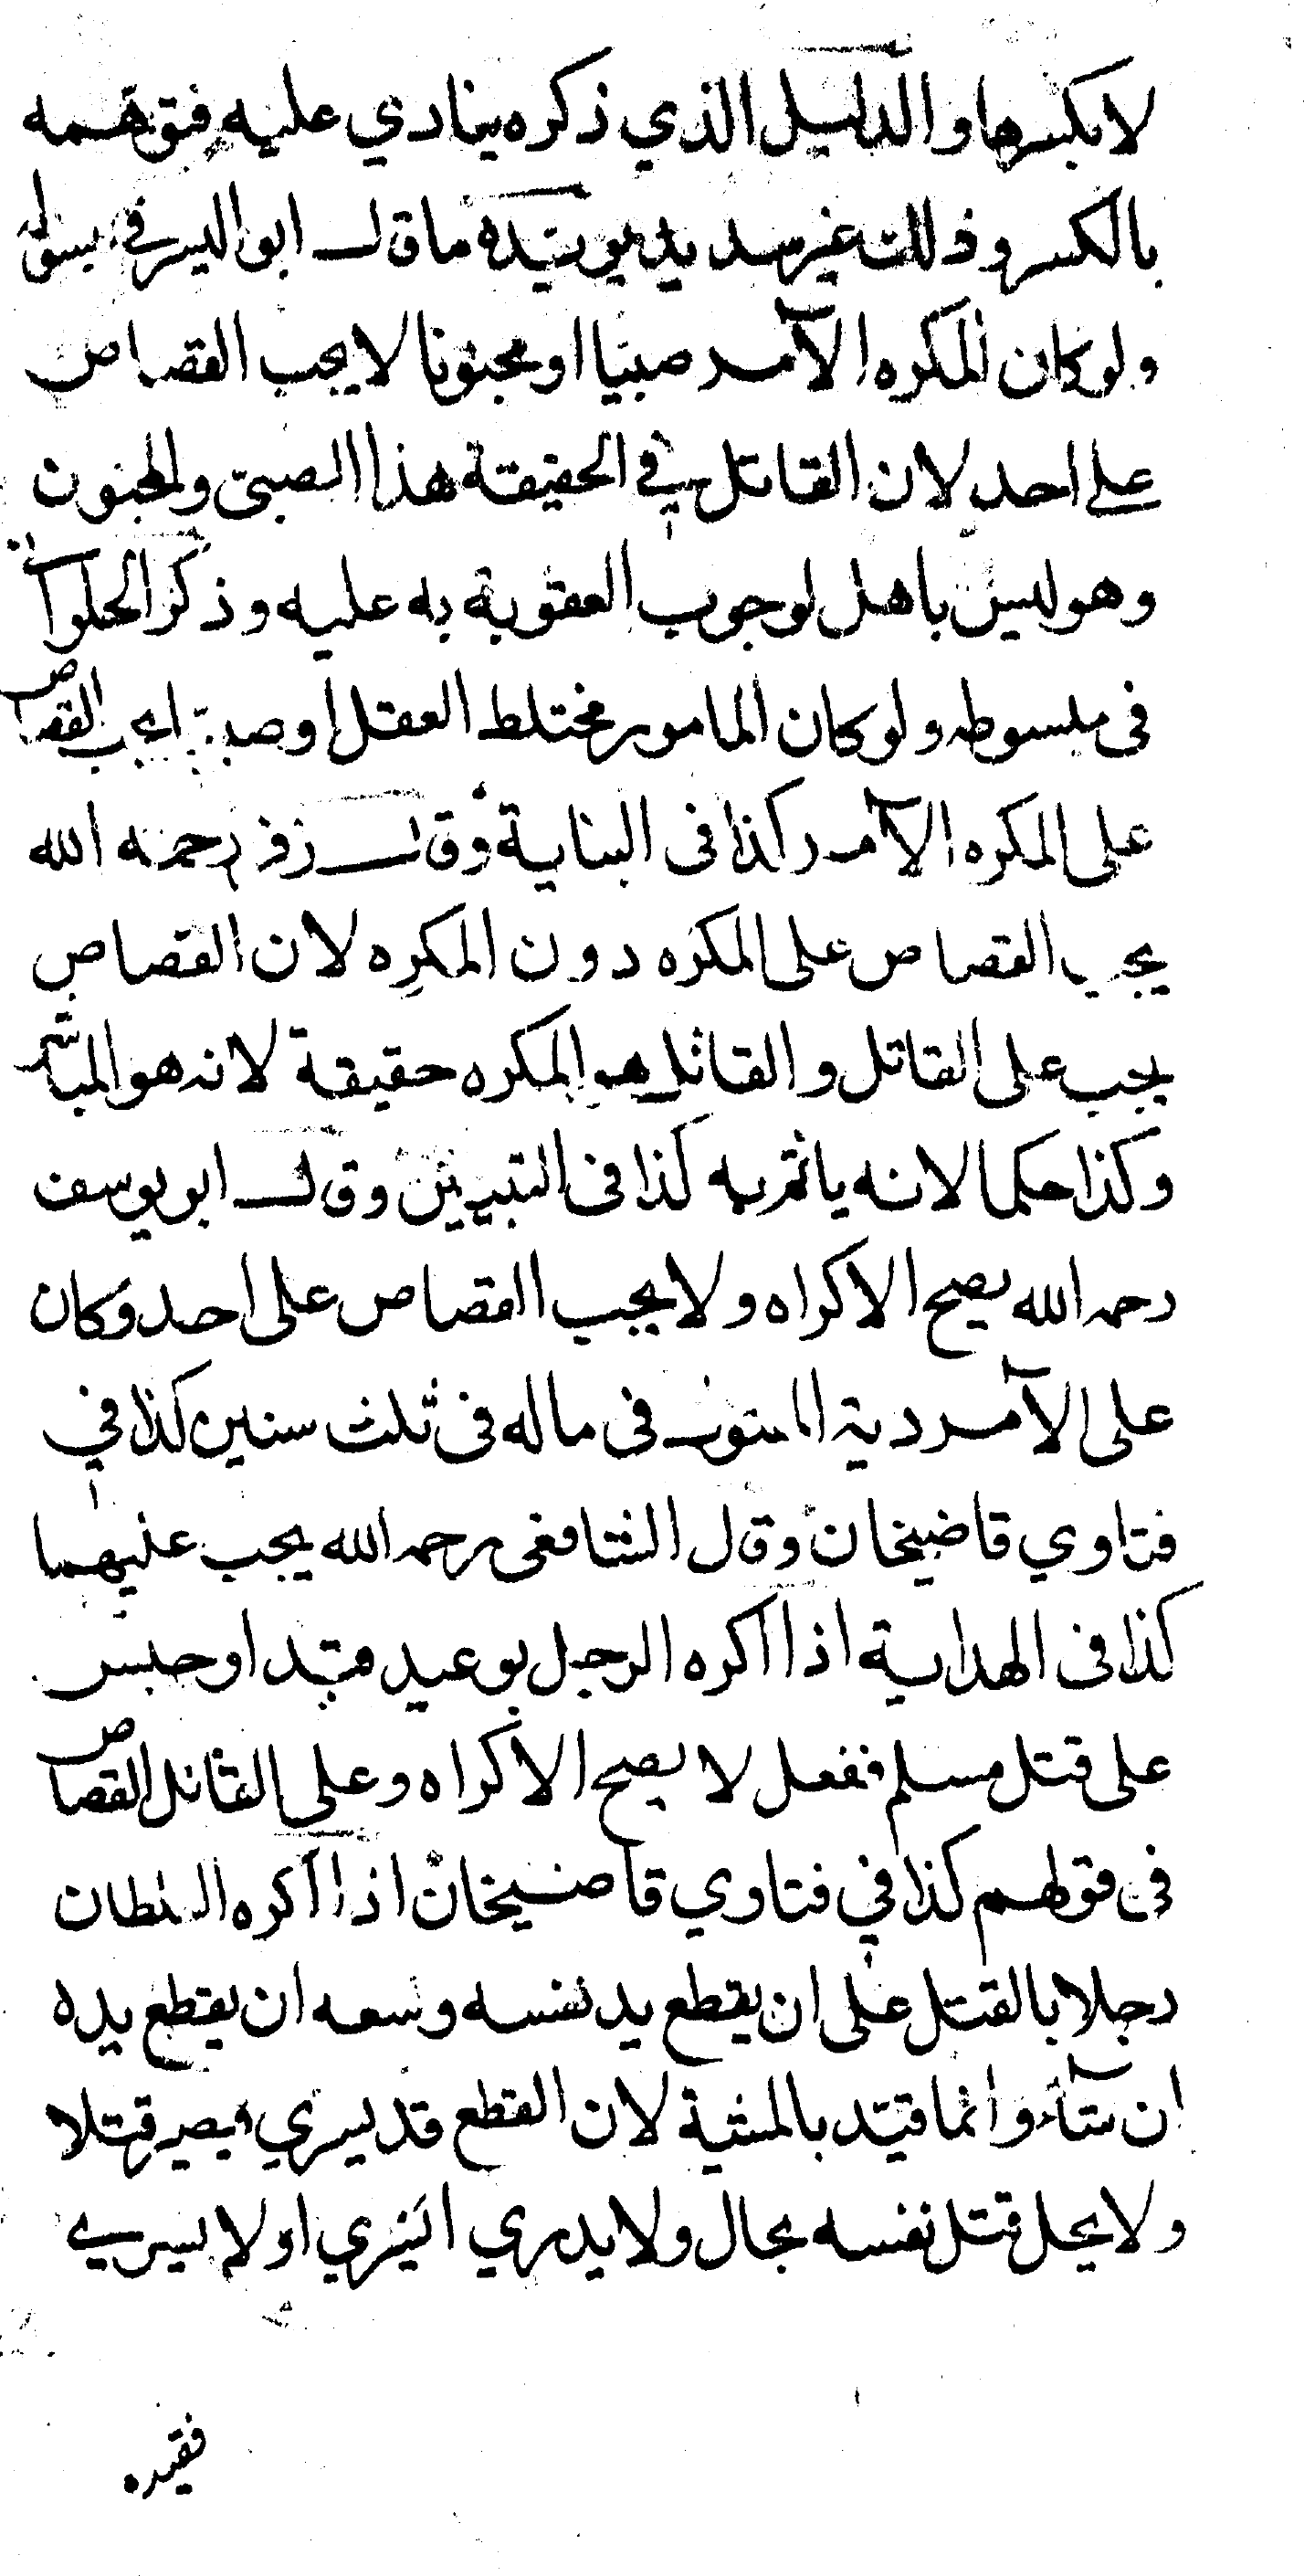 لا بكسرها والدليل الذي ذكره ينادي عليه فتوهمه
بالكسر وذلك غير سديد يؤيده ما قال ابو اليسر في مبسوطه
ولو كان المكره الآمر صبيا او مجنونا لا يجب القصاص
على احد لان القاتل في الحقيقة هذا الصبى والمجنون
وهو ليس باهل لوجوب العقوبة به عليه وذكر الحلواني
فى مبسوطه ولو كان المامور مختلط العقل او صبيا يجب القصاص
على المكره الآمر كذا فى البناية وقال زفر رحمه الله
يجب القصاص على المكره دون المكرِه لان القصاص
يجب على القاتل والقاتل هو المكره حقيقة لانه هو المباشر
وكذا حكما لانه ياثم به كذا فى التبيين وقال ابو يوسف
رحمه الله يصح الاكراه ولا يجب القصاص على احد وكان
على الآمر دية المقتول فى ماله فى ثلث سنين كذا في
فتاوي قاضيخان وقال الشافعى رحمه الله يجب عليهما
كذا فى الهداية اذا اكره الرجل بوعيد قيد او حبس
على قتل مسلم ففعل لا يصح الاكراه وعلى القاتل القصاص
فى قولهم كذا في فتاوي قاضيخان اذا اكره السلطان
رجلا بالقتل على ان يقطع يد نفسه وسعه ان يقطع يده
ان شآء وانما قيّد بالمشية لان القطع قد يسري فيصير قتلا
ولا يحل قتل نفسه بحال ولا يدري ايسري او لا يسري